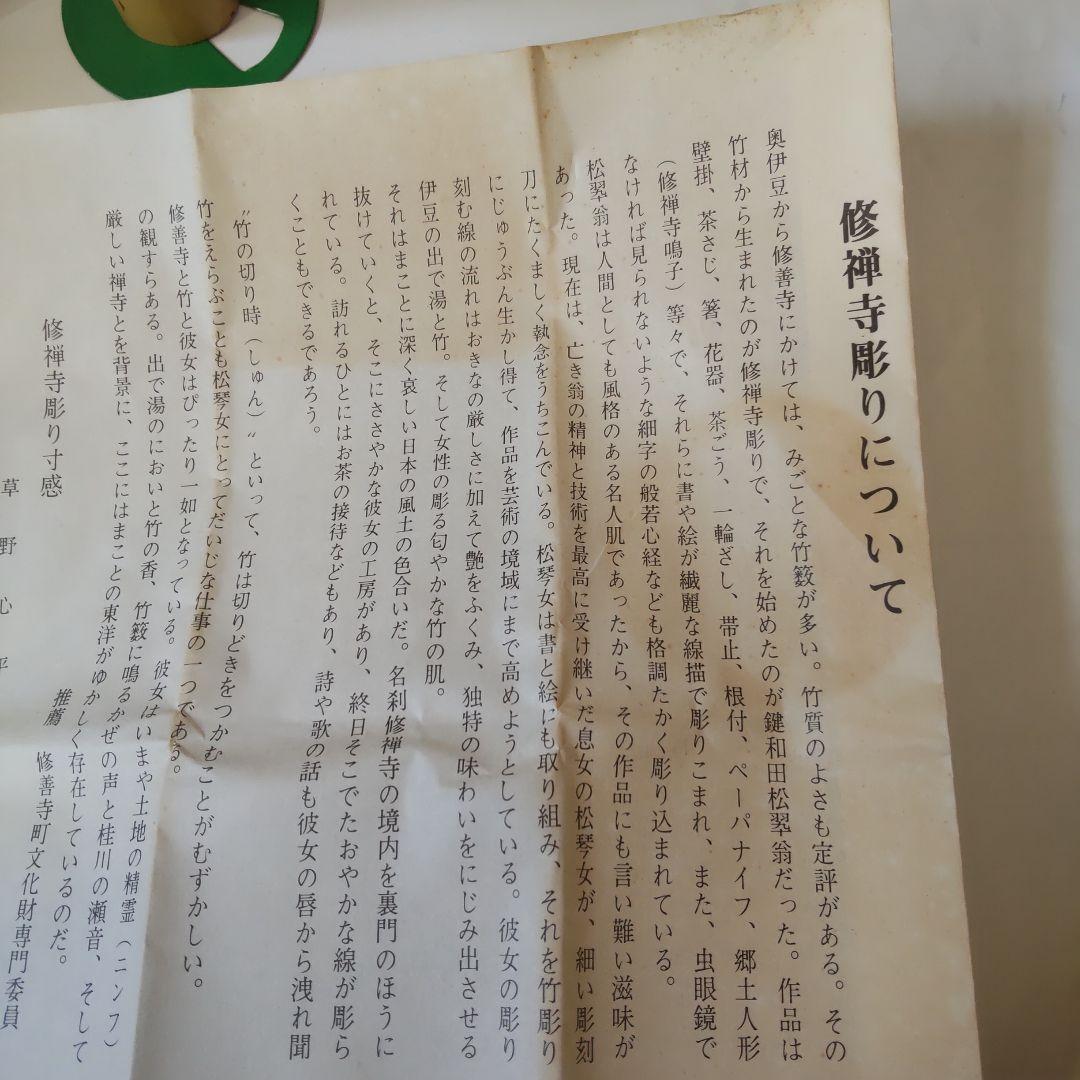 修禅寺彫りについて
奥伊豆から修善寺にかけては、みごとな竹籔が多い。竹質のよさも定評がある。その
竹材から生まれたのが修禅寺彫りで、それを始めたのが鍵和田松翆翁だった。作品は
壁掛、茶さじ、箸、花器、茶ごう、一輪ざし、帯止、根付、ペーパナイフ、郷土人形
（修禅寺鳴子）等々で、それらに書や絵が繊麗な線描で彫りこまれ、また、虫眼鏡で
なければ見られないような細字の般若心経なども格調たかく彫り込まれている。
松翆翁は人間としても風格のある名人肌であったから、その作品にも言い難い滋味が
あった。現在は、亡き翁の精神と技術を最高に受け継いだ息女の松琴女が、細い彫刻
刀にたくましく執念をうちこんでいる。松琴女は書と絵にも取り組み、それを竹彫り
にじゅうぶん生かし得て、作品を芸術の境域にまで高めようとしている。彼女の彫り
刻む線の流れはおきなの厳しさに加えて艶をふくみ、独特の味わいをにじみ出させる
伊豆の出で湯と竹。そして女性の彫る匂やかな竹の肌。
それはまことに深く哀しい日本の風土の色合いだ。名刹修禅寺の境内を裏門のほうに
抜けていくと、そこにささやかな彼女の工房があり、終日そこでたおやかな線が彫ら
れている。訪れるひとにはお茶の接待などもあり、詩や歌の話も彼女の唇から洩れ聞
くこともできるであろう。
〝竹の切り時（しゅん）〟といって、竹は切りどきをつかむことがむずかしい。
竹をえらぶことも松琴女にとってだいじな仕事の一つである。
修善寺と竹と彼女はぴったり一如となっている。彼女はいまや土地の精霊（ニンフ）
の観すらある。出で湯のにおいと竹の香、竹籔に鳴るかぜの声と桂川の瀬音、そして
厳しい禅寺とを背景に、ここにはまことの東洋がゆかしく存在しているのだ。
推薦　修善寺町文化財専門委員
修禅寺彫り寸感
草野心平